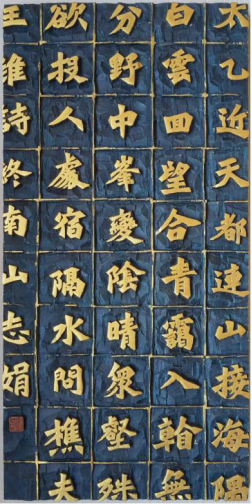 太乙近天都連山接海隅
白雲回望合青靄入看無
分野中峯變陰晴衆壑殊
欲投人處宿隔水問樵夫
王維詩終南山志娟